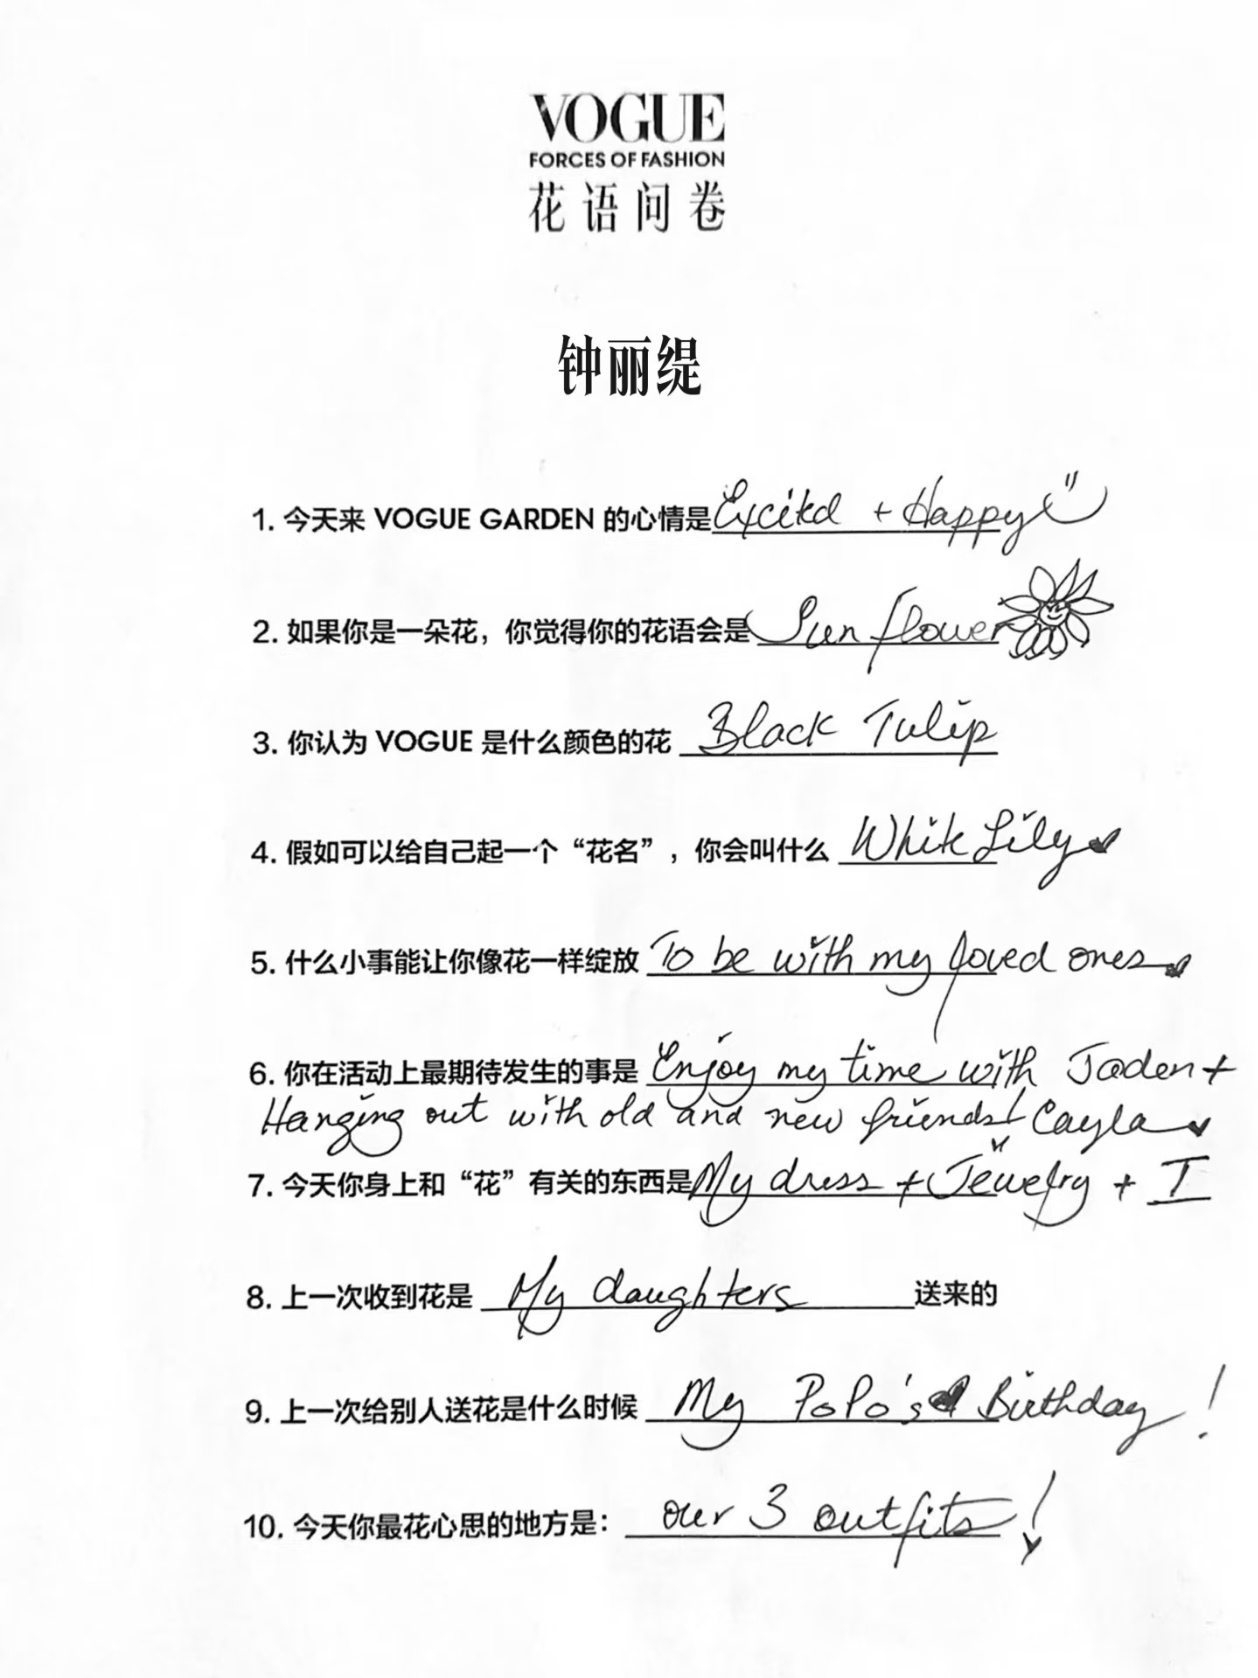 VOGUE
FORCES OF FASHION
花语问卷
钟丽缇
1. 今天来 VOGUE GARDEN 的心情是 Excited + Happy
2. 如果你是一朵花，你觉得你的花语会是 Sunflower
3. 你认为 VOGUE 是什么颜色的花 Black Tulip
4. 假如可以给自己起一个“花名”，你会叫什么 White Lily
5. 什么小事能让你像花一样绽放 To be with my loved ones
6. 你在活动上最期待发生的事是 Enjoy my time with Jaden +
Hanging out with old and new friends! Cayla
7. 今天你身上和“花”有关的东西是 My dress + Jewelry + I
8. 上一次收到花是 My daughters 送来的
9. 上一次给别人送花是什么时候 My PoPo's Birthday !
10. 今天你最花心思的地方是： our 3 outfits !